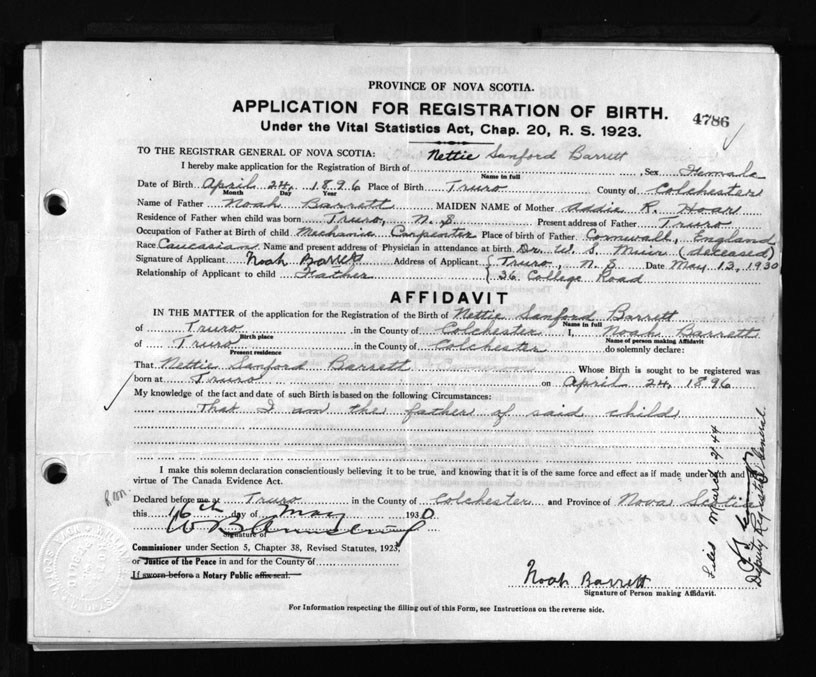 PROVINCE OF NOVA SCOTIA.
APPLICATION FOR REGISTRATION OF BIRTH.
4786
Under the Vital Statistics Act, Chap. 20, R. S. 1923.
TO THE REGISTRAR GENERAL OF NOVA SCOTIA:
I hereby make application for the Registration of Birth of Nettie Sanford Barrett, Sex Female
Name in full
Date of Birth April 24, 1896 Place of Birth Truro County of Colchester
Month Day Year
Name of Father Noah Barrett MAIDEN NAME of Mother Addie R. Hoar
Residence of Father when child was born Truro, N. S Present address of Father Truro
Occupation of Father at Birth of child Mechanic Carpenter Place of birth of Father Cornwall, England
Race Caucasian Name and present address of Physician in attendance at birth Dr. W. S. Muir (deceased)
Signature of Applicant Noah Barrett Address of Applicant { Truro, N. S. Date May 13, 1930
Relationship of Applicant to child Father { 36 College Road
AFFIDAVIT
IN THE MATTER of the application for the Registration of the Birth of Nettie Sanford Barrett
Name in full
of Truro in the County of Colchester I, Noah Barrett
Birth place Name of person making Affidavit
of Truro in the County of Colchester do solemnly declare:
Present residence
That Nettie Sanford Barrett Whose Birth is sought to be registered was
born at Truro on April 24, 1896
My knowledge of the fact and date of such Birth is based on the following Circumstances:
That I am the father of said child
I make this solemn declaration conscientiously believing it to be true, and knowing that it is of the same force and effect as if made under oath and by
virtue of The Canada Evidence Act.
Declared before me at Truro in the County of Colchester and Province of Nova Scotia
this 16th day of May 1930
Signature of
Commissioner under Section 5, Chapter 38, Revised Statutes, 1923,
or Justice of the Peace in and for the County of
If sworn before a Notary Public affix seal.
Noah Barrett
Signature of Person making Affidavit.
For Information respecting the filling out of this Form, see Instructions on the reverse side.
Deputy Registrar General